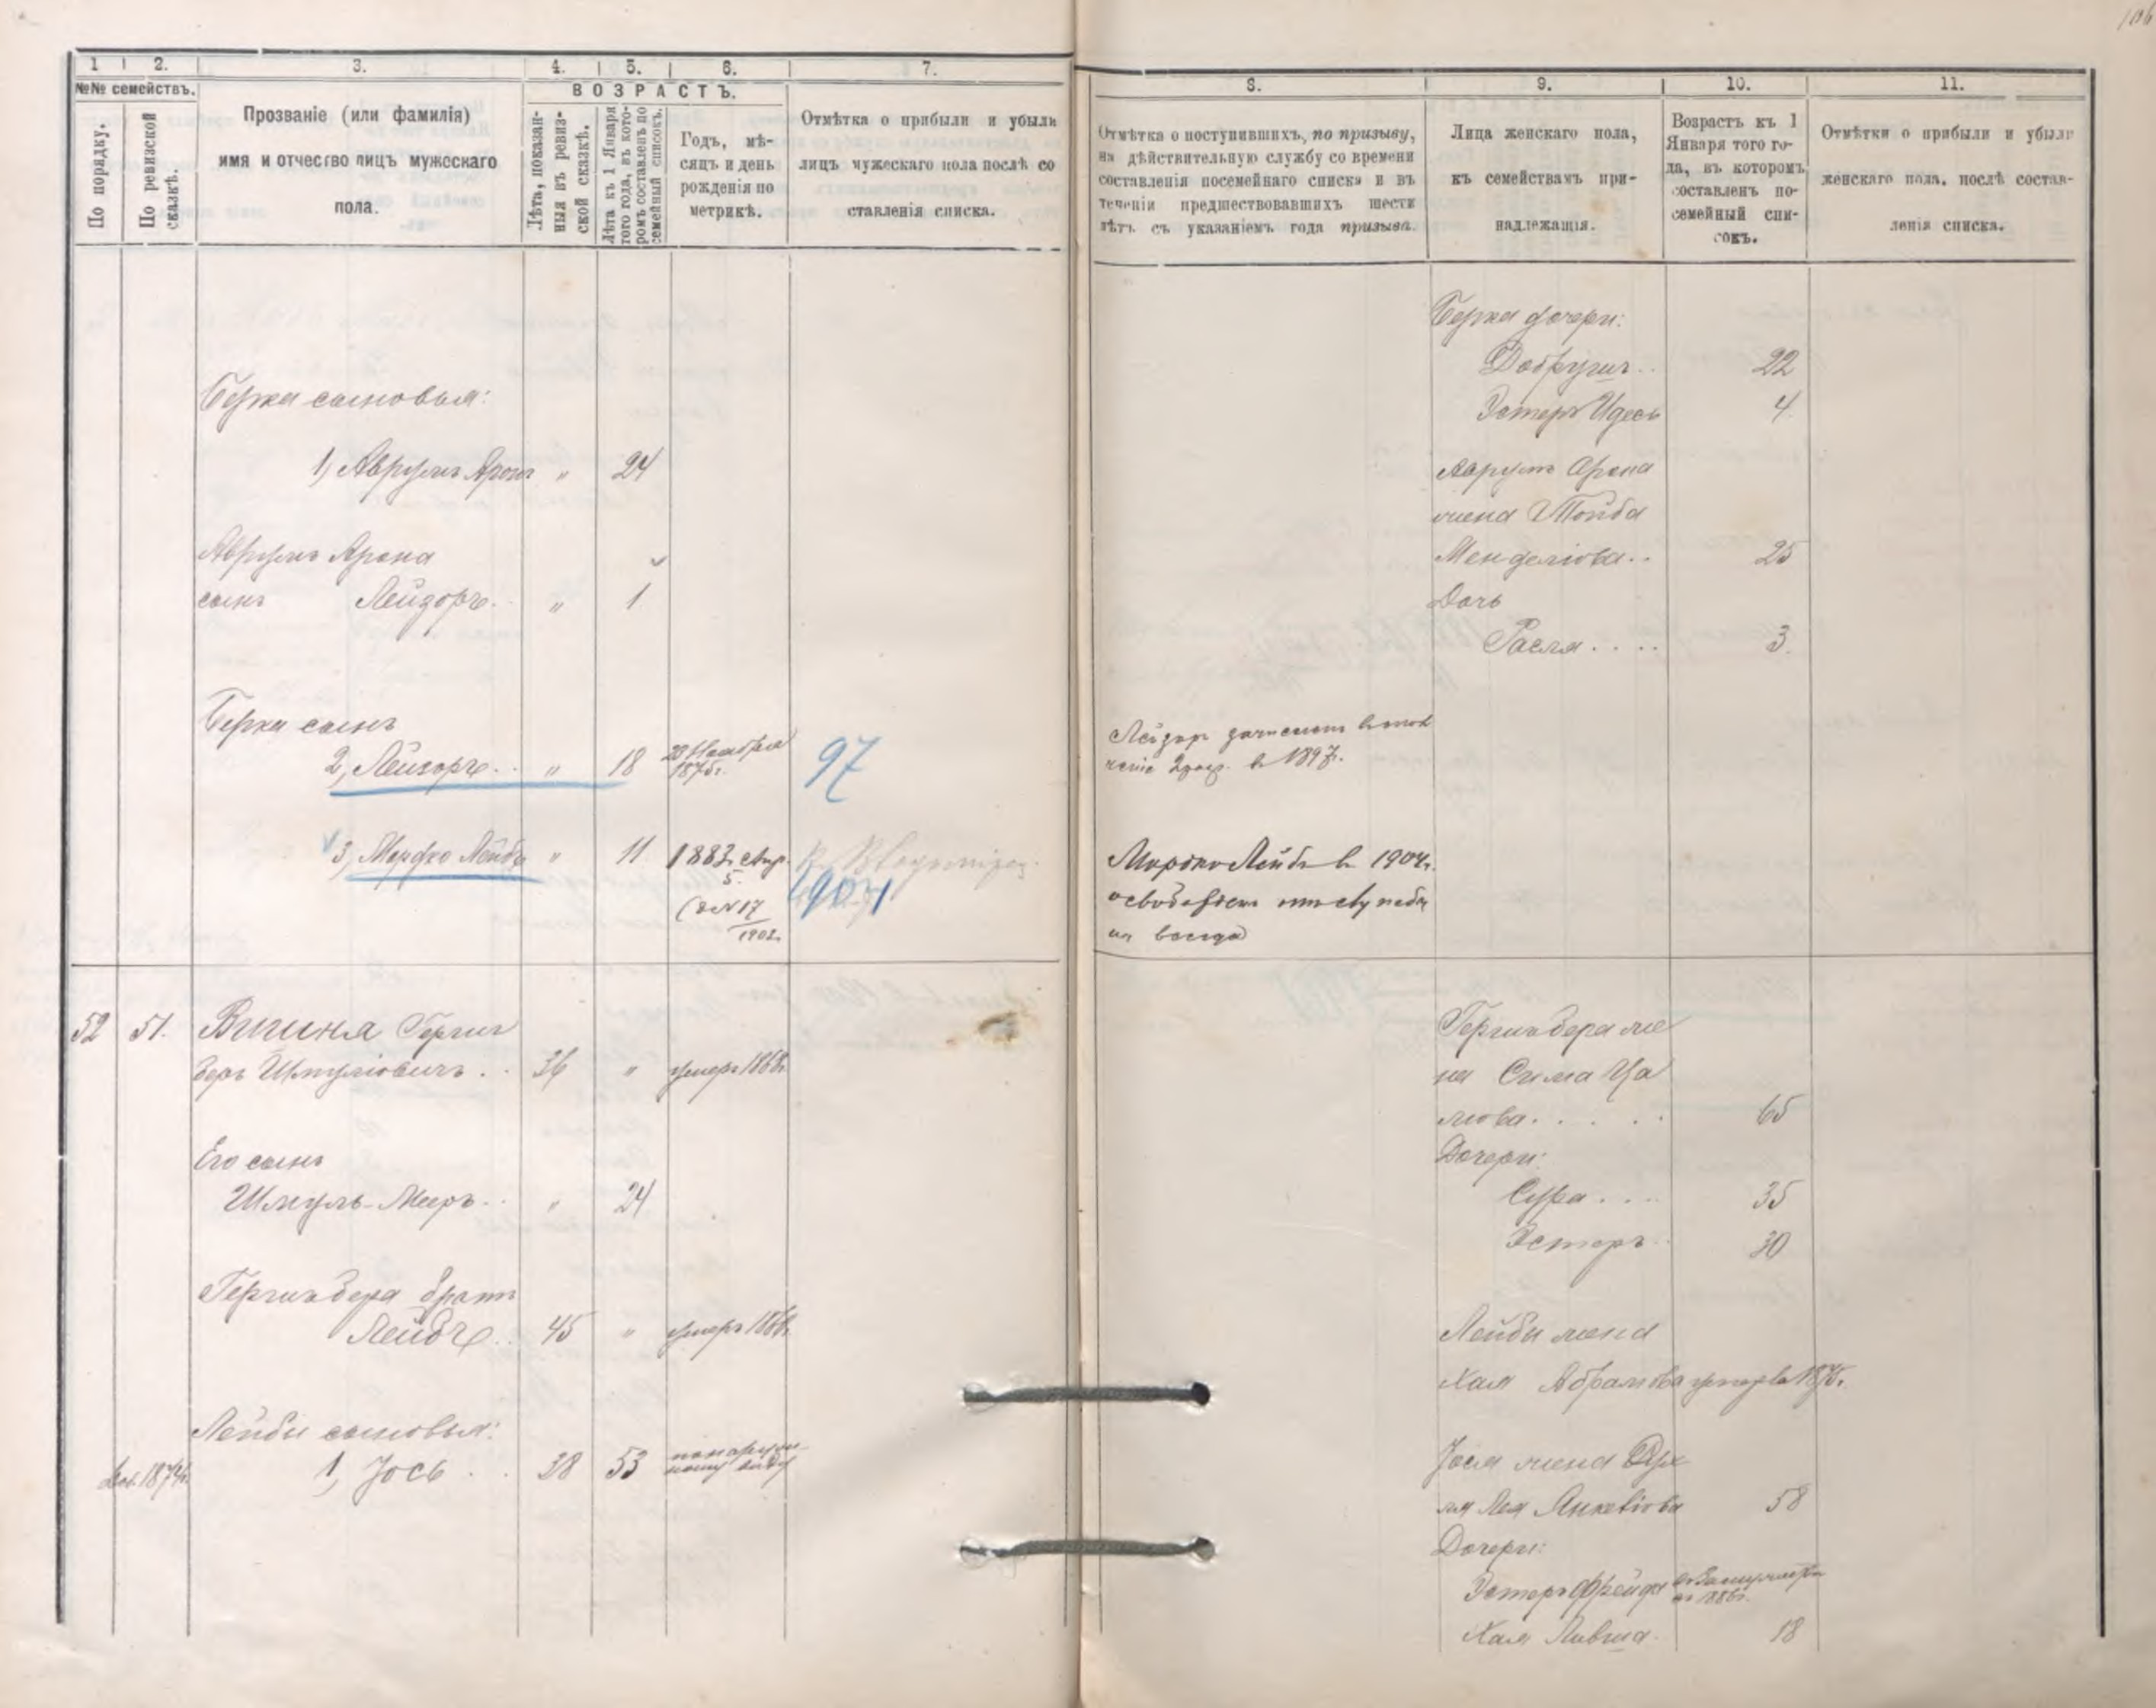 106
1
2.
3.
4.
5.
6.
7.
№№ семействъ.
По порядку.
По ревизской
сказкѣ.
Прозваніе (или фамилія)
имя и отчество лицъ мужескаго
пола.
ВОЗРАСТЪ.
Лѣта, показан-
ныя въ ревиз-
ской сказкѣ.
Лѣта къ 1 Января
того года, въ кото-
ромъ составленъ по
семейный списокъ.
Годъ, мѣ-
сяцъ и день
рожденія по
метрикѣ.
Отмѣтка о прибыли и убыли
лицъ мужескаго пола послѣ со
ставленія списка.
Берка сыновья:
1, Аврумъ Аронъ " 24
Аврумъ Арона
сынъ Лейзоръ " 1
Берка сынъ
2, Лейзоръ " 18 1875г. 97
3, Мордхо Лейбъ " 11 1883 Апр.
5.
17
1902
1904
52 51. Вигиня Гершъ
беръ Шмуліовичъ 36 " умеръ 1868г.
Его сынъ
Шмуль-Мееръ " 24
Гершъ бера братъ
Лейбъ 45 " умеръ 1866г.
Лейбы сыновья:
Доб. 1874г. 1, Іось 28 53 по наруж-
ному виду
8.
9.
10.
11.
Отмѣтка о поступившихъ, по призыву,
на дѣйствительную службу со времени
составленія посемейнаго списка и въ
теченіи предшествовавшихъ шести
лѣтъ съ указаніемъ года призыва.
Лица женскаго пола,
къ семействамъ при-
надлежащія.
Возрастъ къ 1
Января того го-
да, въ которомъ
составленъ по-
семейный спи-
сокъ.
Отмѣтки о прибыли и убыли
женскаго пола, послѣ состав-
ленія списка.
Берка дочери:
22
Эстеръ Идесь 4
Аврумъ Арона
жена Тойба
Менделіова 25
Дочь
Расля 3
Лейзоръ зачисленъ въ опол
ченіе 2 разр. въ 1897г.
Мордхо Лейбъ въ 1904г.
освобожденъ отъ службы
на всегда
Гершъ бера же
на Сима Ца
лова 65
Дочери:
Сура 35
Эстеръ 30
Лейбы жена
Хая Абрамова умерла 1875г.
Іося жена Рух
ля Лея Янкеліова 58
Дочери:
Эстеръ Фрейда въ замужест
въ 1886г.
Хая Ривка 18